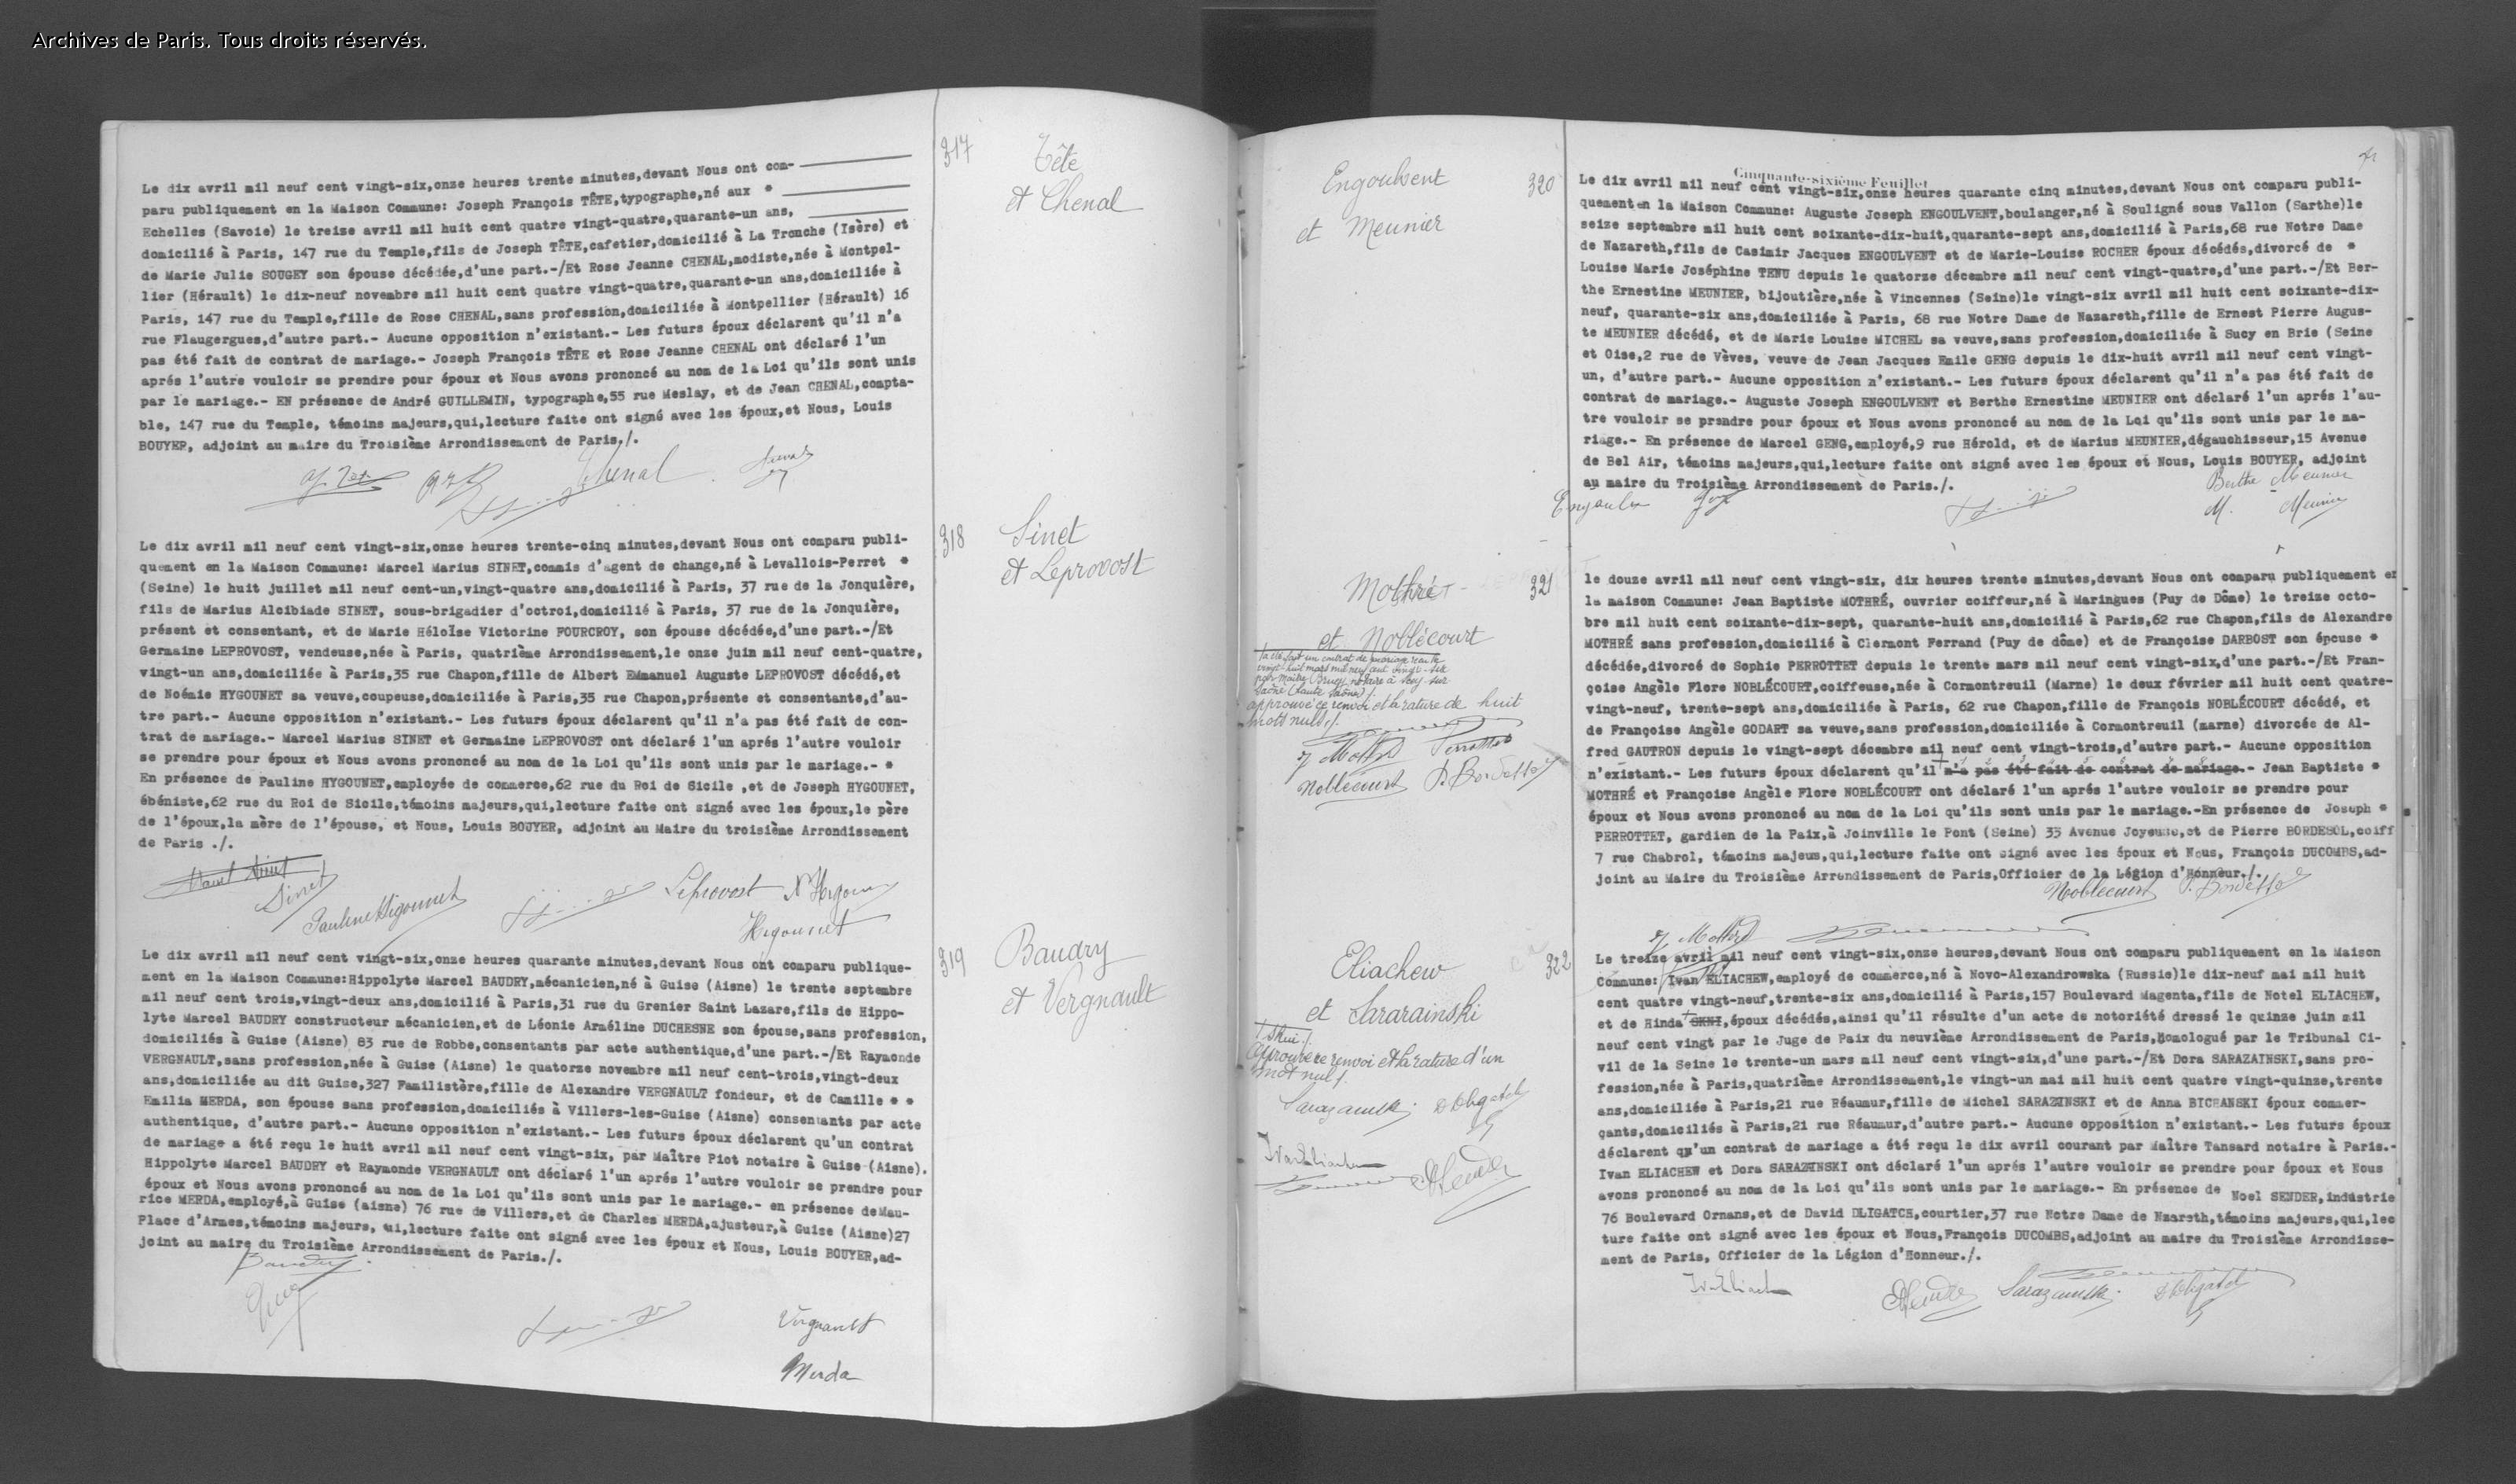 Archives de Paris. Tous droits réservés.
317
Tête
et Chenal
Le dix avril mil neuf cent vingt-six,onze heures trente minutes,devant Nous ont com-
paru publiquement en la Maison Commune: Joseph François TÊTE,typographe,né aux *
Echelles (Savoie) le treize avril mil huit cent quatre vingt-quatre,quarante-un ans,
domicilié à Paris, 147 rue du Temple,fils de Joseph TÊTE,cafetier,domicilié à La Tronche (Isère) et
de Marie Julie SOUGEY son épouse décédée,d'une part.-/Et Rose Jeanne CHENAL,modiste,née à Montpel-
lier (Hérault) le dix-neuf novembre mil huit cent quatre vingt-quatre,quarante-un ans,domiciliée à
Paris, 147 rue du Temple,fille de Rose CHENAL,sans profession,domiciliée à Montpellier (Hérault) 16
rue Flaugergues,d'autre part.- Aucune opposition n'existant.- Les futurs époux déclarent qu'il n'a
pas été fait de contrat de mariage.- Joseph François TÊTE et Rose Jeanne CHENAL ont déclaré l'un
aprés l'autre vouloir se prendre pour époux et Nous avons prononcé au nom de la Loi qu'ils sont unis
par le mariage.- EN présence de André GUILLEMIN, typographe,55 rue Meslay, et de Jean CHENAL,compta-
ble, 147 rue du Temple, témoins majeurs,qui,lecture faite ont signé avec les époux,et Nous, Louis
BOUYER, adjoint au maire du Troisième Arrondissement de Paris,/.
Chenal
318
Sinet
et Leprovost
Le dix avril mil neuf cent vingt-six,onze heures trente-cinq minutes,devant Nous ont comparu publi-
quement en la Maison Commune: Marcel Marius SINET,commis d'agent de change,né à Levallois-Perret *
(Seine) le huit juillet mil neuf cent-un,vingt-quatre ans,domicilié à Paris, 37 rue de la Jonquière,
fils de Marius Alcibiade SINET, sous-brigadier d'octroi,domicilié à Paris, 37 rue de la Jonquière,
présent et consentant, et de Marie Héloïse Victorine FOURCROY, son épouse décédée,d'une part.-/Et
Germaine LEPROVOST, vendeuse,née à Paris, quatrième Arrondissement,le onze juin mil neuf cent-quatre,
vingt-un ans,domiciliée à Paris,35 rue Chapon,fille de Albert EMmanuel Auguste LEPROVOST décédé,et
de Noémie HYGOUNET sa veuve,coupeuse,domiciliée à Paris,35 rue Chapon,présente et consentante,d'au-
tre part.- Aucune opposition n'existant.- Les futurs époux déclarent qu'il n'a pas été fait de con-
trat de mariage.- Marcel Marius SINET et Germaine LEPROVOST ont déclaré l'un aprés l'autre vouloir
se prendre pour époux et Nous avons prononcé au nom de la Loi qu'ils sont unis par le mariage.- *
En présence de Pauline HYGOUNET,employée de commerce,62 rue du Roi de Sicile ,et de Joseph HYGOUNET,
ébéniste,62 rue du Roi de Sicile,témoins majeurs,qui,lecture faite ont signé avec les époux,le père
de l'époux,la mère de l'épouse, et Nous, Louis BOUYER, adjoint au Maire du troisième Arrondissement
de Paris ./.
Marcel Sinet
Sinet
Pauline Higounet
Leprovost
Higounet
319
Baudry
et Vergnault
Le dix avril mil neuf cent vingt-six,onze heures quarante minutes,devant Nous ont comparu publique-
ment en la Maison Commune:Hippolyte Marcel BAUDRY,mécanicien,né à Guise (Aisne) le trente septembre
mil neuf cent trois,vingt-deux ans,domicilié à Paris,31 rue du Grenier Saint Lazare,fils de Hippo-
lyte Marcel BAUDRY constructeur mécanicien,et de Léonie Arméline DUCHESNE son épouse,sans profession,
domiciliés à Guise (Aisne) 83 rue de Robbe,consentants par acte authentique,d'une part.-/Et Raymonde
VERGNAULT,sans profession,née à Guise (Aisne) le quatorze novembre mil neuf cent-trois,vingt-deux
ans,domiciliée au dit Guise,327 Familistère,fille de Alexandre VERGNAULT fondeur, et de Camille * *
Emilia MERDA, son épouse sans profession,domiciliés à Villers-les-Guise (Aisne) consentants par acte
authentique, d'autre part.- Aucune opposition n'existant.- Les futurs époux déclarent qu'un contrat
de mariage a été reçu le huit avril mil neuf cent vingt-six, par Maître Piot notaire à Guise (Aisne).
Hippolyte Marcel BAUDRY et Raymonde VERGNAULT ont déclaré l'un aprés l'autre vouloir se prendre pour
époux et Nous avons prononcé au nom de la Loi qu'ils sont unis par le mariage.- en présence de Mau-
rice MERDA,employé,à Guise (aisne) 76 rue de Villers,et de Charles MERDA,ajusteur,à Guise (Aisne)27
Place d'Armes,témoins majeurs, qui,lecture faite ont signé avec les époux et Nous, Louis BOUYER,ad-
joint au maire du Troisième Arrondissement de Paris./.
Baudry
Vergnault
Merda
Cinquante-sixième Feuillet
Engoulvent
et Meunier
320
Le dix avril mil neuf cent vingt-six,onze heures quarante cinq minutes,devant Nous ont comparu publi-
quement en la Maison Commune: Auguste Joseph ENGOULVENT,boulanger,né à Souligné sous Vallon (Sarthe)le
seize septembre mil huit cent soixante-dix-huit,quarante-sept ans,domicilié à Paris,68 rue Notre Dame
de Nazareth,fils de Casimir Jacques ENGOULVENT et de Marie-Louise ROCHER époux décédés,divorcé de *
Louise Marie Joséphine TENU depuis le quatorze décembre mil neuf cent vingt-quatre,d'une part.-/Et Ber-
the Ernestine MEUNIER, bijoutière,née à Vincennes (Seine)le vingt-six avril mil huit cent soixante-dix-
neuf, quarante-six ans,domiciliée à Paris, 68 rue Notre Dame de Nazareth,fille de Ernest Pierre Augus-
te MEUNIER décédé, et de Marie Louise MICHEL sa veuve,sans profession,domiciliée à Sucy en Brie (Seine
et Oise,2 rue de Vèves, veuve de Jean Jacques Emile GENG depuis le dix-huit avril mil neuf cent vingt-
un, d'autre part.- Aucune opposition n'existant.- Les futurs époux déclarent qu'il n'a pas été fait de
contrat de mariage.- Auguste Joseph ENGOULVENT et Berthe Ernestine MEUNIER ont déclaré l'un aprés l'au-
tre vouloir se prendre pour époux et Nous avons prononcé au nom de la Loi qu'ils sont unis par le ma-
riage.- En présence de Marcel GENG,employé,9 rue Hérold, et de Marius MEUNIER,dégauchisseur,15 Avenue
de Bel Air, témoins majeurs,qui,lecture faite ont signé avec les époux et Nous, Louis BOUYER, adjoint
au maire du Troisième Arrondissement de Paris./.
Berthe Meunier
M. Meunier
Mothré
et Noblécourt
321
/a été fait un contrat de mariage reçu le
vingt-huit mars mil neuf cent vingt-six
par Maître Brugy notaire à Scey-sur
Saône (Haute Saône)/.
approuvé ce renvoi et la rature de huit
mots nuls/.
J Mothré Perrottet
Noblécourt
le douze avril mil neuf cent vingt-six, dix heures trente minutes,devant Nous ont comparu publiquement en
la maison Commune: Jean Baptiste MOTHRÉ, ouvrier coiffeur,né à Maringues (Puy de Dôme) le treize octo-
bre mil huit cent soixante-dix-sept, quarante-huit ans,domicilié à Paris,62 rue Chapon,fils de Alexandre
MOTHRÉ sans profession,domicilié à Clermont Ferrand (Puy de dôme) et de Françoise DARBOST son épouse *
décédée,divorcé de Sophie PERROTTET depuis le trente mars mil neuf cent vingt-six,d'une part.-/Et Fran-
çoise Angèle Flore NOBLÉCOURT,coiffeuse,née à Cormontreuil (Marne) le deux février mil huit cent quatre-
vingt-neuf, trente-sept ans,domiciliée à Paris, 62 rue Chapon,fille de François NOBLÉCOURT décédé, et
de Françoise Angèle GODART sa veuve,sans profession,domiciliée à Cormontreuil (marne) divorcée de Al-
fred GAUTRON depuis le vingt-sept décembre mil neuf cent vingt-trois,d'autre part.- Aucune opposition
n'existant.- Les futurs époux déclarent qu'il n'a pas été fait de contrat de mariage.- Jean Baptiste *
MOTHRÉ et Françoise Angèle Flore NOBLÉCOURT ont déclaré l'un aprés l'autre vouloir se prendre pour
époux et Nous avons prononcé au nom de la Loi qu'ils sont unis par le mariage.-En présence de Joseph *
PERROTTET, gardien de la Paix,à Joinville le Pont (Seine) 33 Avenue Joyeuse,et de Pierre BORDESOL,coiff
7 rue Chabrol, témoins majeus,qui,lecture faite ont signé avec les époux et Nous, François DUCOMBS,ad-
joint au Maire du Troisième Arrondissement de Paris,Officier de la Légion d'Honneur./.
Noblécourt
J Mothré
Eliachew
et Sararainski
322
Approuvé ce renvoi et la rature d'un
mot nul/.
Le treize avril mil neuf cent vingt-six,onze heures,devant Nous ont comparu publiquement en la Maison
Commune: Ivan ELIACHEW,employé de commerce,né à Novo-Alexandrowska (Russie)le dix-neuf mai mil huit
cent quatre vingt-neuf,trente-six ans,domicilié à Paris,157 Boulevard Magenta,fils de Notel ELIACHEW,
et de Hinda SKNI,époux décédés,ainsi qu'il résulte d'un acte de notoriété dressé le quinze juin mil
neuf cent vingt par le Juge de Paix du neuvième Arrondissement de Paris,Homologué par le Tribunal Ci-
vil de la Seine le trente-un mars mil neuf cent vingt-six,d'une part.-/Et Dora SARAZAINSKI,sans pro-
fession,née à Paris,quatrième Arrondissement,le vingt-un mai mil huit cent quatre vingt-quinze,trente
ans,domiciliée à Paris,21 rue Réaumur,fille de Michel SARAZINSKI et de Anna BICHANSKI époux commer-
çants,domiciliés à Paris,21 rue Réaumur,d'autre part.- Aucune opposition n'existant.- Les futurs époux
déclarent qu'un contrat de mariage a été reçu le dix avril courant par Maître Tansard notaire à Paris.-
Ivan ELIACHEW et Dora SARAZINSKI ont déclaré l'un aprés l'autre vouloir se prendre pour époux et Nous
avons prononcé au nom de la Loi qu'ils sont unis par le mariage.- En présence de Noel SENDER,industrie
76 Boulevard Ornans,et de David DLIGATCH,courtier,37 rue Notre Dame de Nzareth,témoins majeurs,qui,lec
ture faite ont signé avec les époux et Nous,François DUCOMBS,adjoint au maire du Troisième Arrondisse-
ment de Paris, Officier de la Légion d'Honneur./.